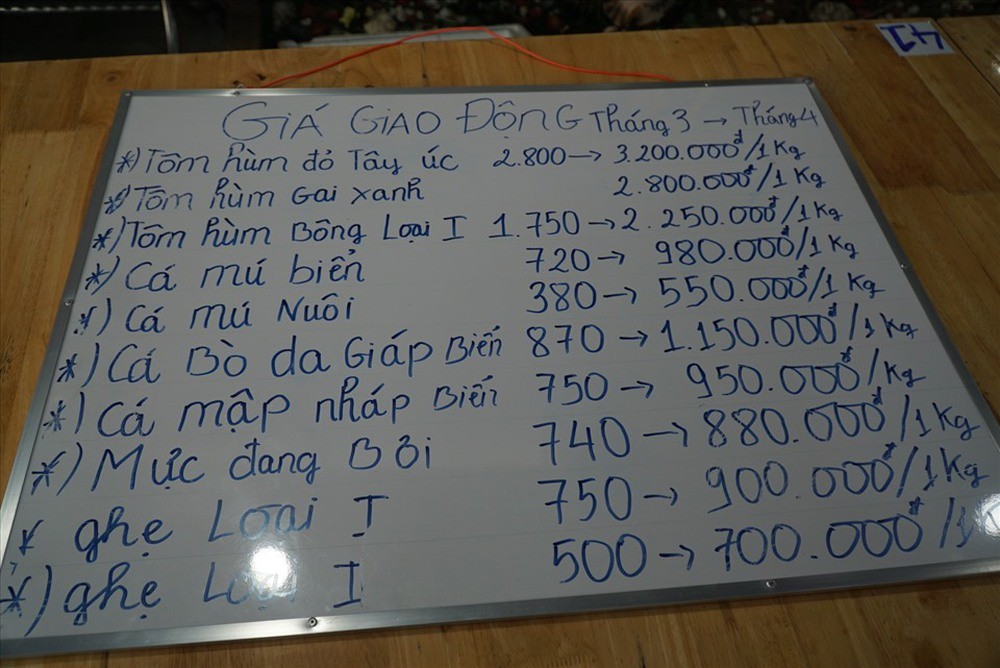 47
GIÁ GIAO ĐỘNG Tháng 3 → Tháng 4
*) Tôm hùm đỏ Tây úc 2.800 → 3.200.000đ/1 Kg
*) Tôm hùm Gai xanh 2.800.000đ/1 Kg
*) Tôm hùm Bông Loại I 1.750 → 2.250.000đ/1 Kg
*) Cá mú biển 720 → 980.000đ/1 Kg
*) Cá mú Nuôi 380 → 550.000đ/1 Kg
*) Cá Bò da Giáp Biển 870 → 1.150.000đ/1 Kg
*) Cá mập nháp Biển 750 → 950.000đ/Kg
*) Mực đang Bơi 740 → 880.000đ/1 Kg
* ghẹ Loại I 750 → 900.000đ/1 Kg
*) ghẹ Loại I 500 → 700.000đ/1